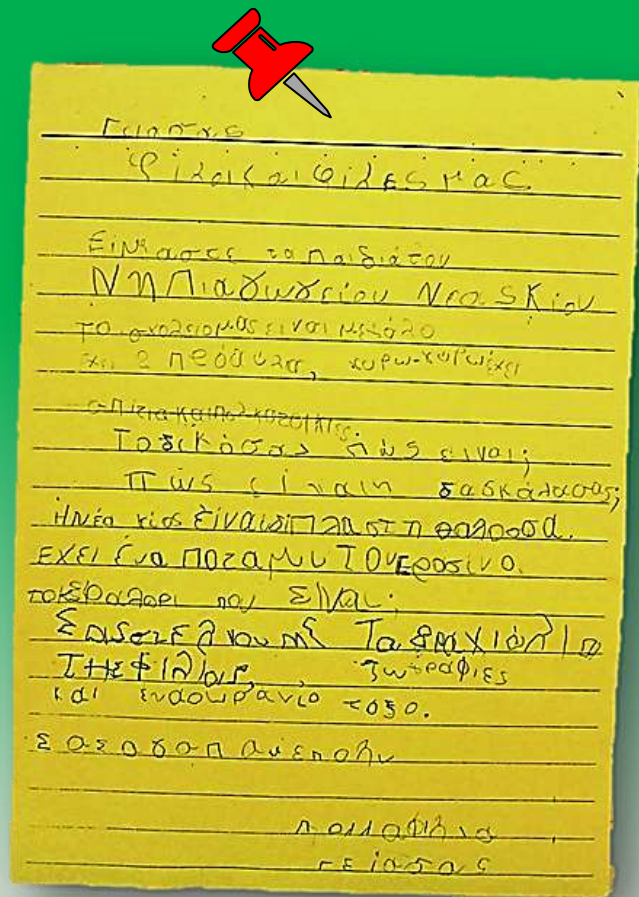 Γειασας
φίλοικαιφίλεςμας
Είμαστε ταπαιδιάτου
ΝηΠιαγωγείου ΝεαςΚίου
το σχολειομας ειναι μεγάλο
έχει 2 προαύλια, γυρω-γυρωέχει
σπίτιακαιπολυκατοικίες.
Τοδικόσας πώς ειναι;
Πως είναιη δασκάλασας;
ΗΝέα κίος είναιδιπλαστη θαλασσα.
Εχει ένα ποταμι ΤονερασίνΟ.
που είναι;
Ταβραχιόλια
ΤΗςφιλίας, ζωγραφιες
και έναουρανιο τοξο.
Σαςαγαπαμεπολυ
πολλαφιλια
γειασας